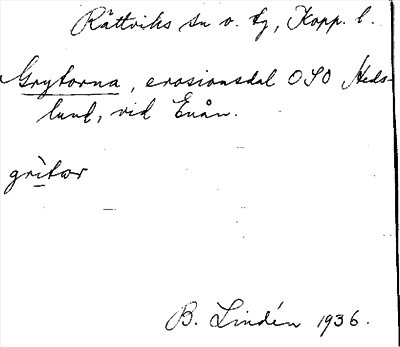 Rättviks sn o. tg, Kopp. l.
Grytorna, erosionsdal OSO Heds-
lund, vid Enån.
grìtær
B. Lindén 1936.